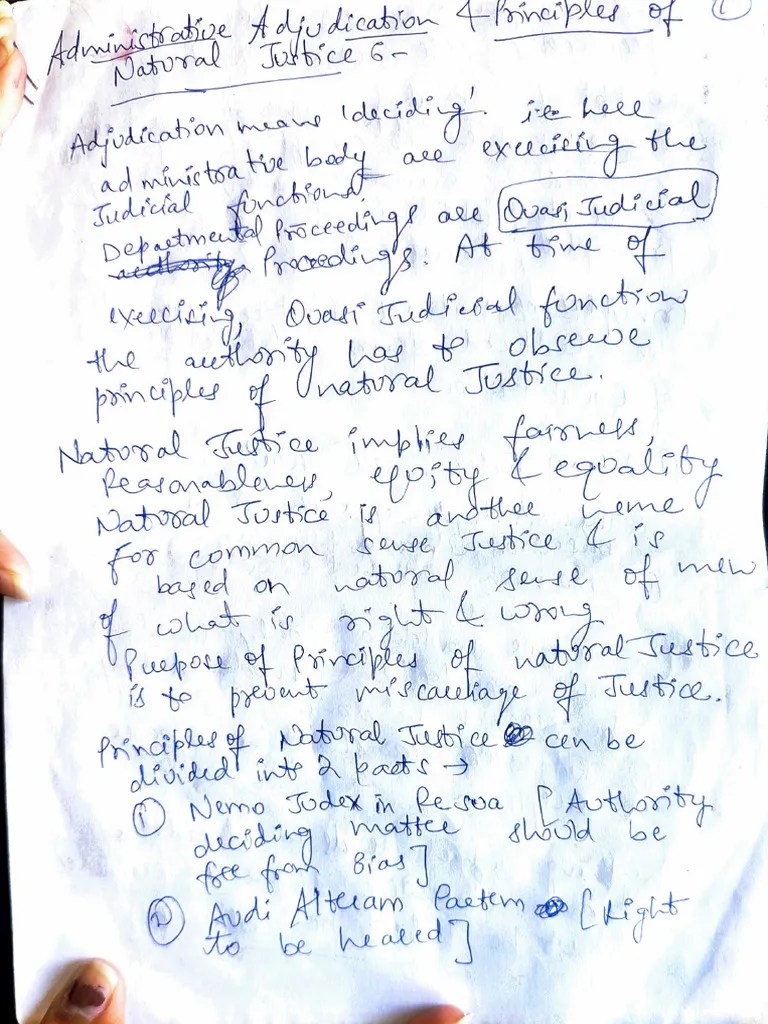 Administrative Adjudication & Principles of ①
Natural Justice :-
Adjudication means 'deciding'. i.e here
administrative body are exercising the
Judicial functions.
Departmental Proceedings are Quasi Judicial
Proceedings. At time of
exercising, Quasi Judicial function
the authority has to observe
principles of natural Justice.
Natural Justice implies fairness,
Reasonableness, equity & equality
Natural Justice is another neme
for common sense Justice & is
based on natural sense of men
of what is right & wrong
Purpose of Principles of natural Justice
is to prevent miscarriage of Justice.
Principles of Natural Justice can be
divided into 2 parts →
① Nemo Judex in Re sua [Authority
deciding matter should be
free from Bias]
② Audi Alteram Partem [Right
to be heared]